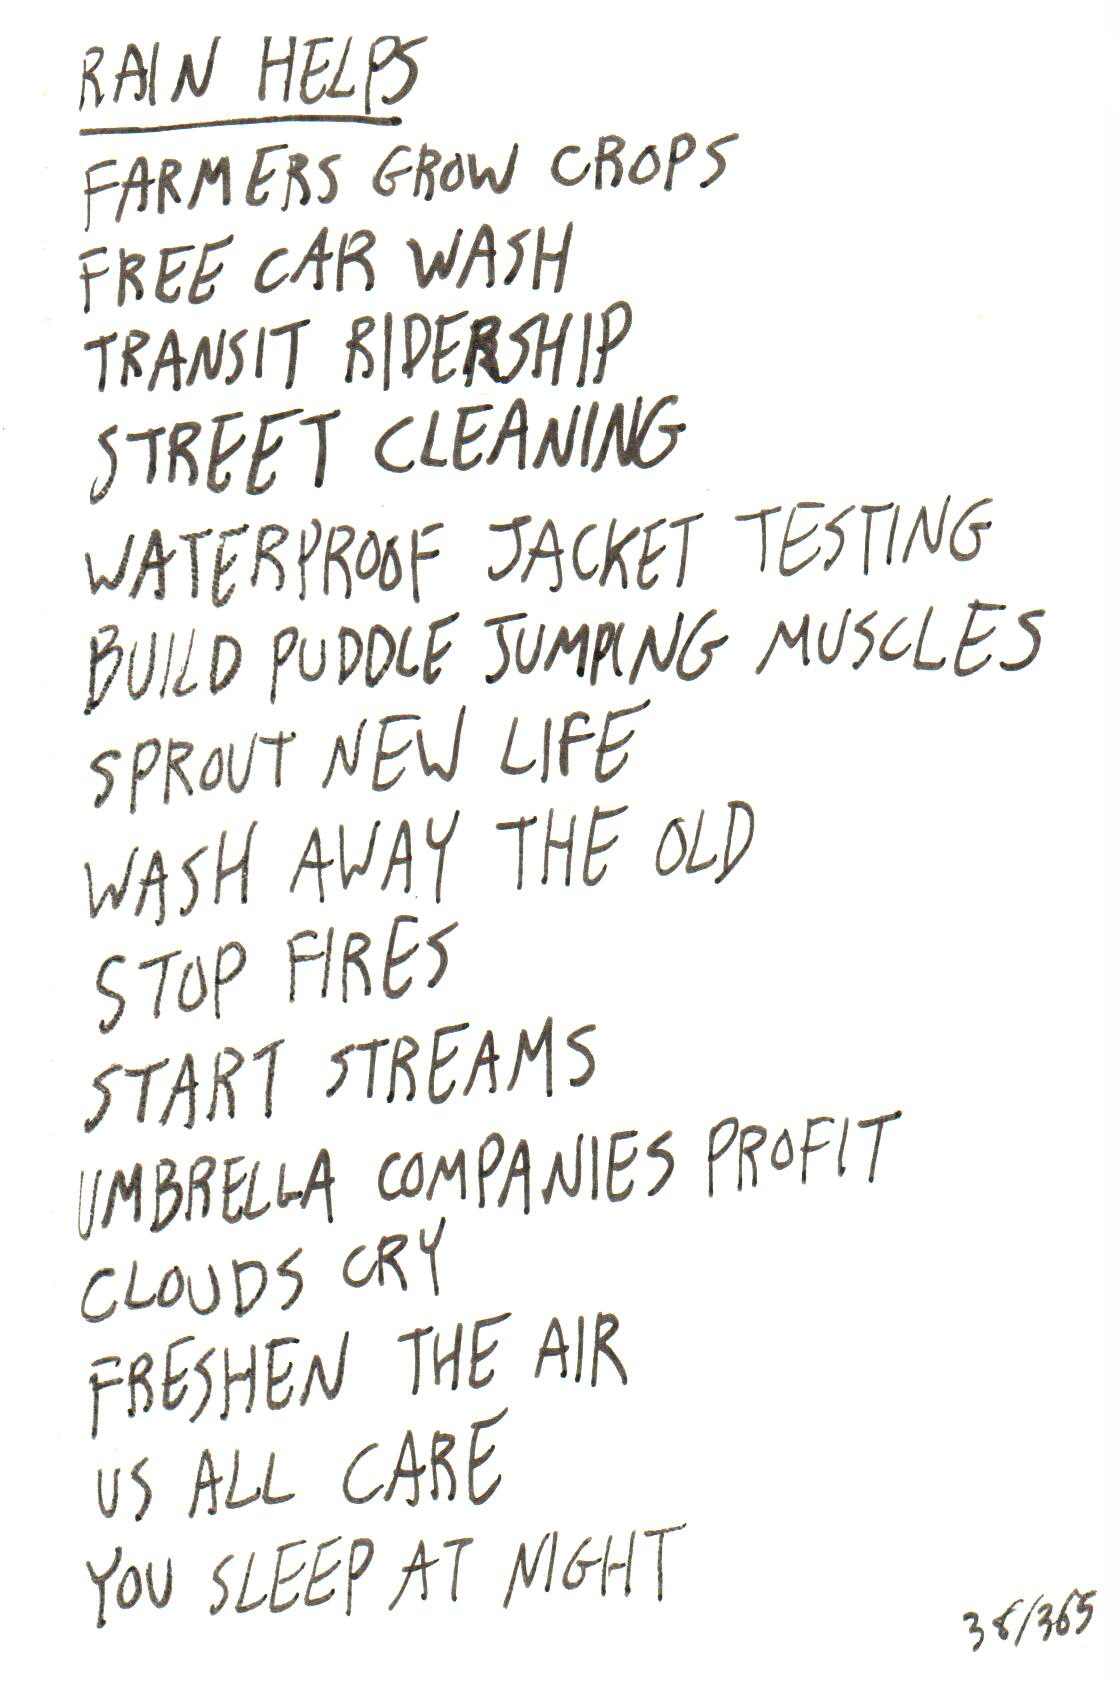 RAIN HELPS
FARMERS GROW CROPS
FREE CAR WASH
TRANSIT RIDERSHIP
STREET CLEANING
WATERPROOF JACKET TESTING
BUILD PUDDLE JUMPING MUSCLES
SPROUT NEW LIFE
WASH AWAY THE OLD
STOP FIRES
START STREAMS
UMBRELLA COMPANIES PROFIT
CLOUDS CRY
FRESHEN THE AIR
US ALL CARE
YOU SLEEP AT NIGHT
38/365